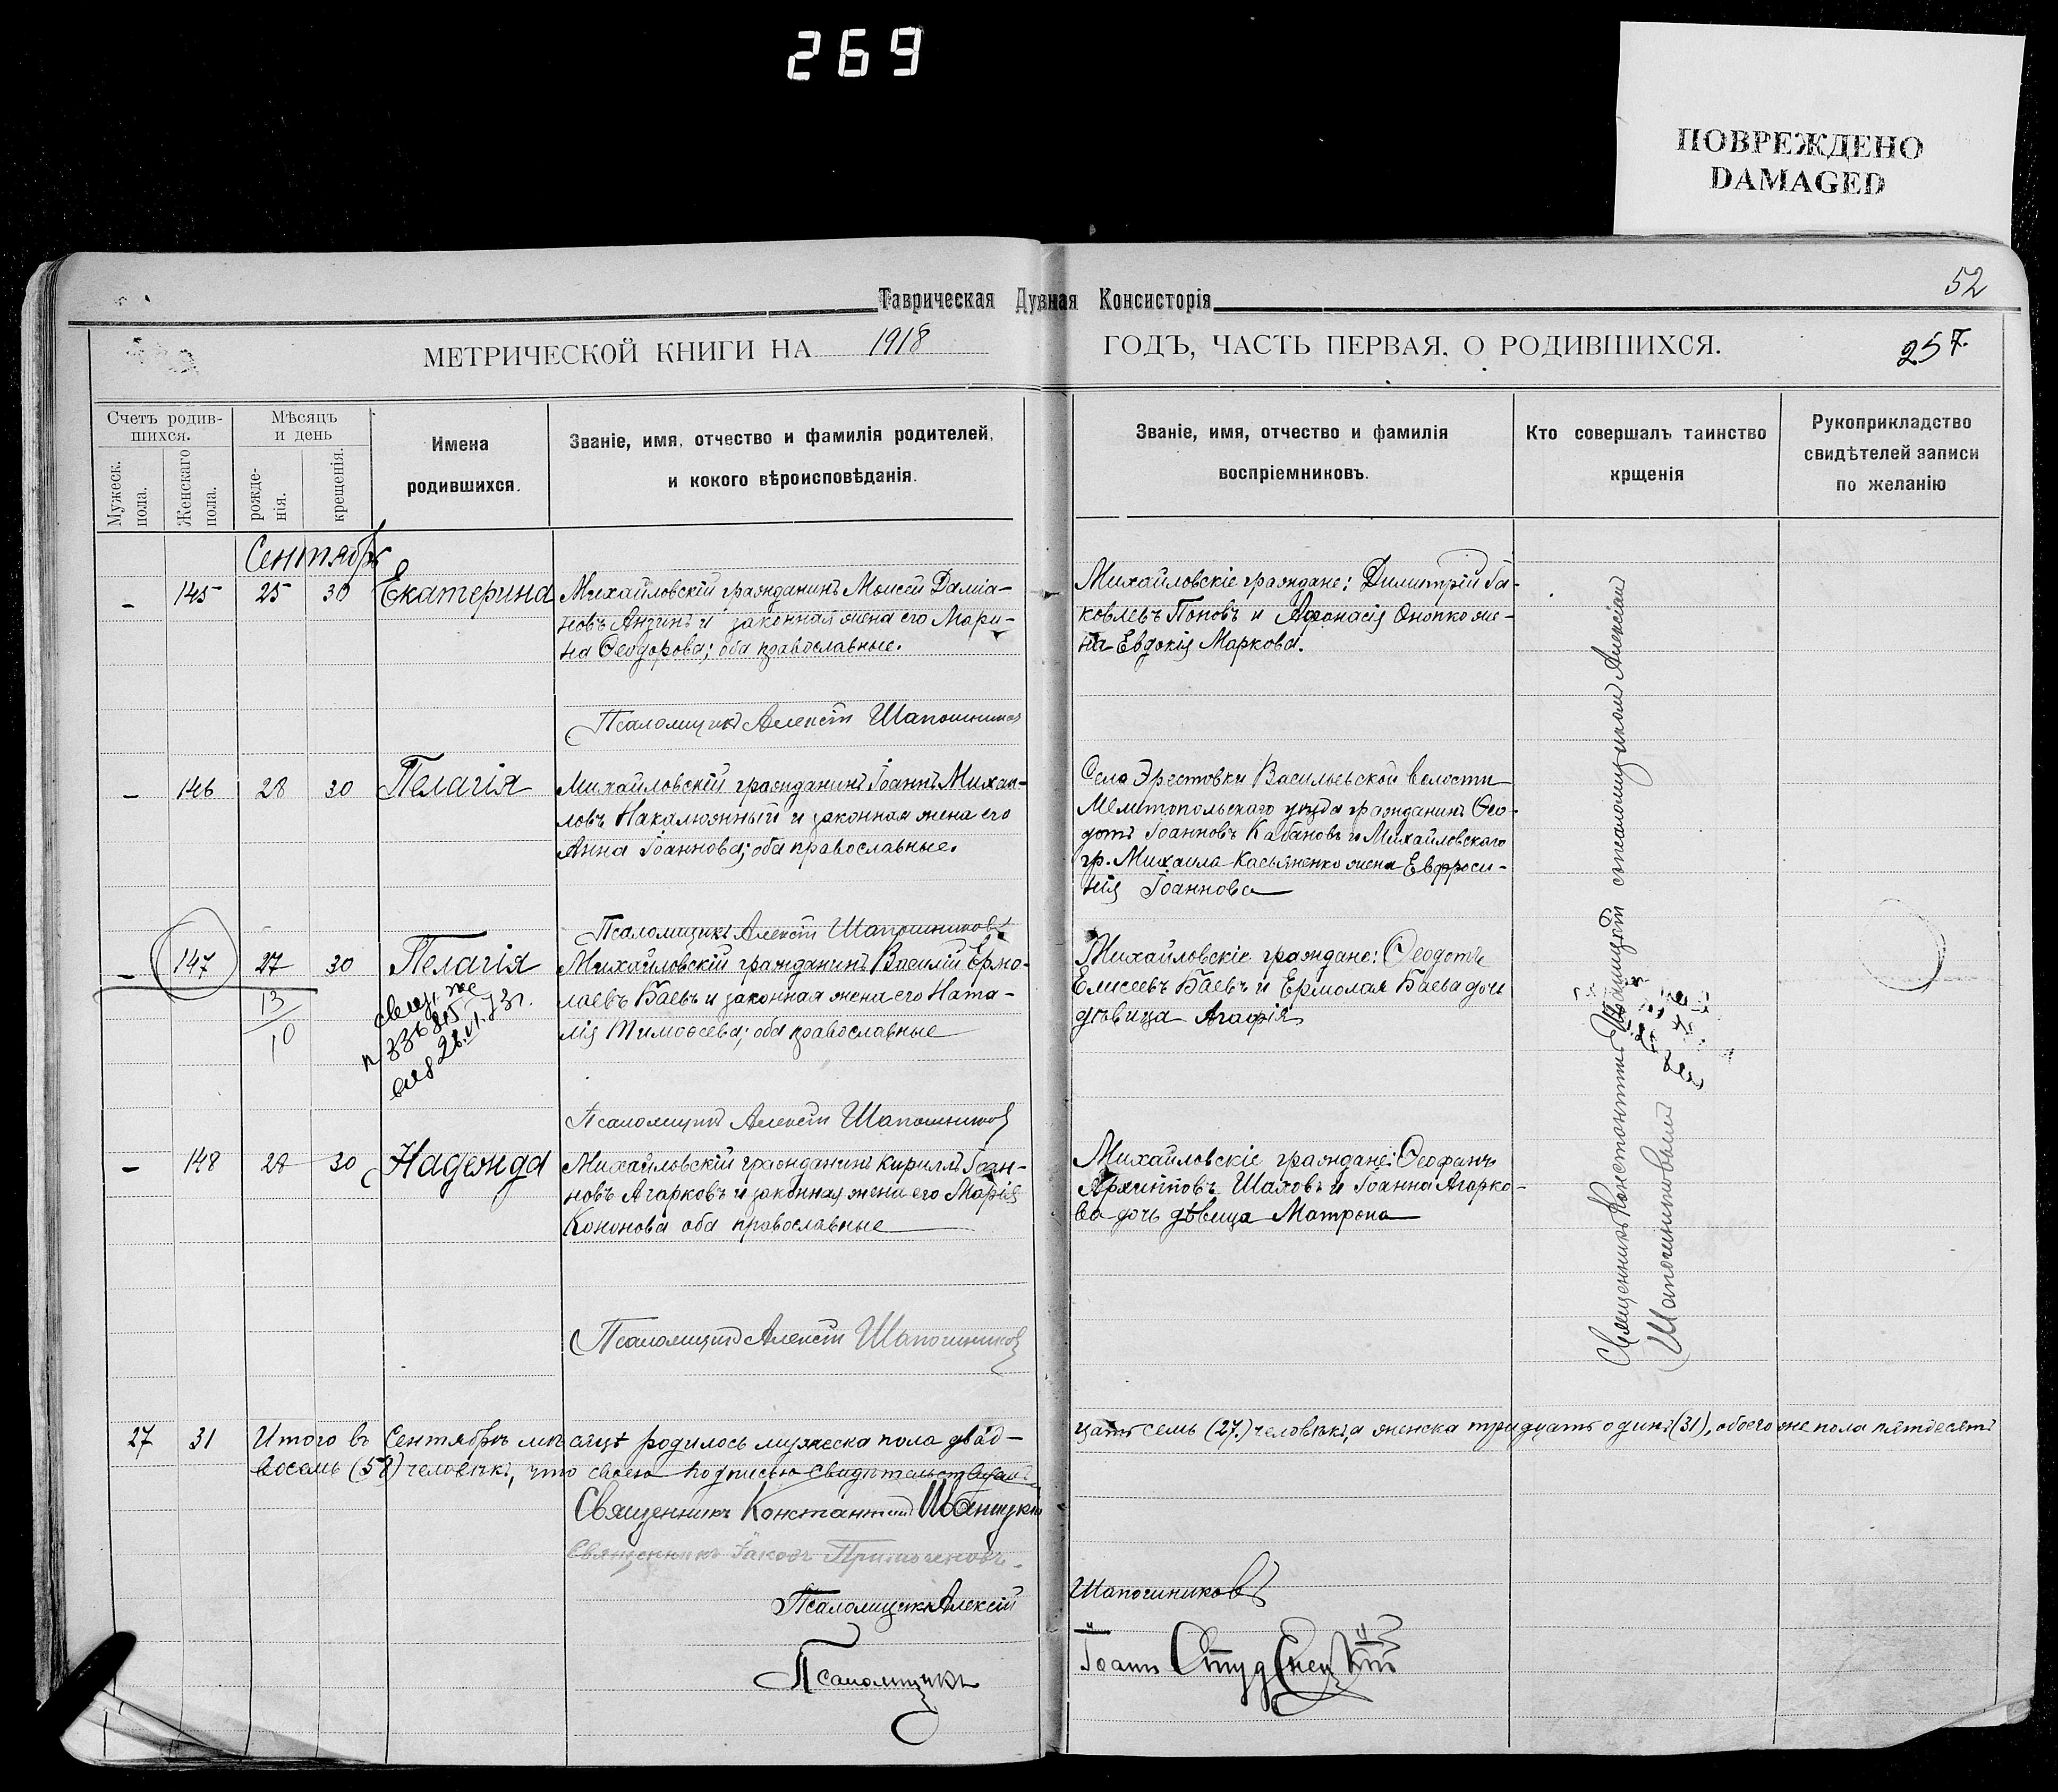 269
ПОВРЕЖДЕНО
DAMAGED
52
Таврическая Духвная Консисторія
МЕТРИЧЕСКОЙ КНИГИ НА 1918 ГОДЪ, ЧАСТЬ ПЕРВАЯ, О РОДИВШИХСЯ.
257.
Счетъ родив-
шихся.
Мужеск. пола.
Женскаго пола.
Мѣсяцъ
и день
рожде-
нія.
крещенія.
Имена
родившихся.
Званіе, имя, отчество и фамилія родителей,
и кокого вѣроисповѣданія.
Званіе, имя, отчество и фамилія
воспріемниковъ.
Кто совершалъ таинство
крщенія
Рукоприкладство
свидѣтелей записи
по желанію
Сентябрь
– 145 25 30 Екатерина
Михайловскій гражданинъ Моисей Даміа-
новъ и законная жена его Мари-
на Ѳеодорова; оба православные.
Михайловскіе граждане: Димитрій Іа-
ковлевъ Поповъ и Афанасія Онопко же-
на Евдокія Маркова.
Псаломщикъ Алексій Шапошниковъ
– 146 28 30 Пелагія
Михайловскій гражданинъ Іоаннъ Михаи-
ловъ Накалюжный и законная жена его
Анна Іоаннова; оба православные.
Села Эрестовки Васильевской волости
Мелитопольскаго уѣзда гражданинъ Ѳео-
дотъ Іоанновъ Кабановъ и Михайловскаго
гр. Михаила Касьяненко жена Евфроси-
нія Іоаннова
Псаломщикъ Алексій Шапошниковъ
– 147 27 30 Пелагія
13
10
Михайловскій гражданинъ Василій Ермо-
лаевъ Баевъ и законная жена его Ната-
лія Тимоѳеева; оба православные
Михайловскіе граждане: Ѳеодотъ
Елисеевъ Баевъ и Ермолая Баева дочь
дѣвица Агафія
Псаломщикъ Алексій Шапошниковъ
– 148 28 30 Надежда
Михайловскій гражданинъ Кириллъ Іоан-
новъ Агарковъ и законная жена его Марія
Кононова оба православные
Михайловскіе граждане: Ѳеофанъ
Архипповъ Шаховъ и Іоанна Агарко-
ва дочь дѣвица Матрона
Псаломщикъ Алексій Шапошниковъ
Священникъ Константинъ Иваницкій съ псаломщикомъ Алексіемъ
Шапошниковымъ
27 31 Итого въ Сентябрѣ мѣсяцѣ родилось мужеска пола двад-
цать семь (27) человѣкъ, а женска тридцать одинъ (31), обоего же пола пятьдесятъ
восемь (58) человѣкъ, что своею подписью свидѣтельствуемъ
Священникъ Константинъ Иваницкій
Священникъ Іаковъ
Псаломщикъ Алексій Шапошниковъ
Псаломщикъ Іоаннъ Студенецкій